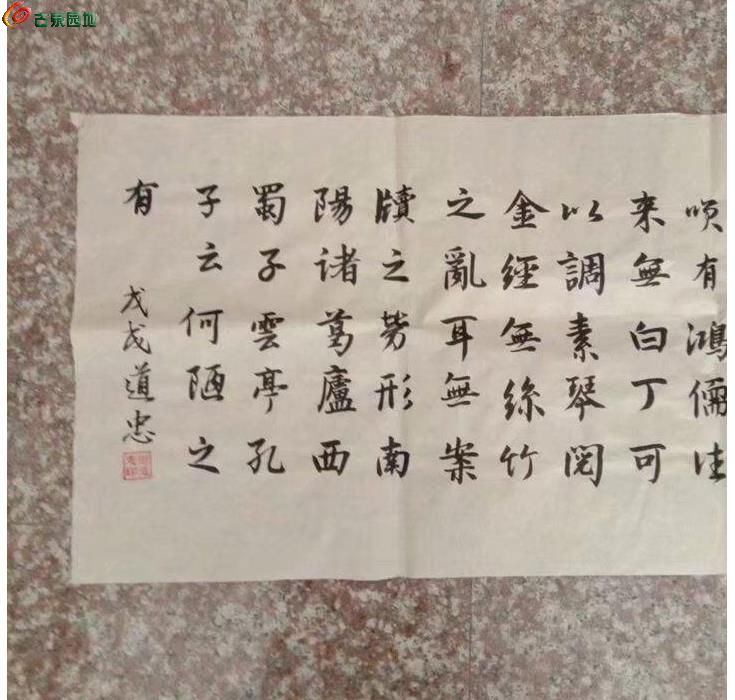 古泉园地
咲有鴻儒往
来無白丁可
以調素琴閱
金經無絲竹
之亂耳無案
牘之劳形南
陽诸葛廬西
蜀子雲亭孔
子云何陋之
有
戊戌道忠